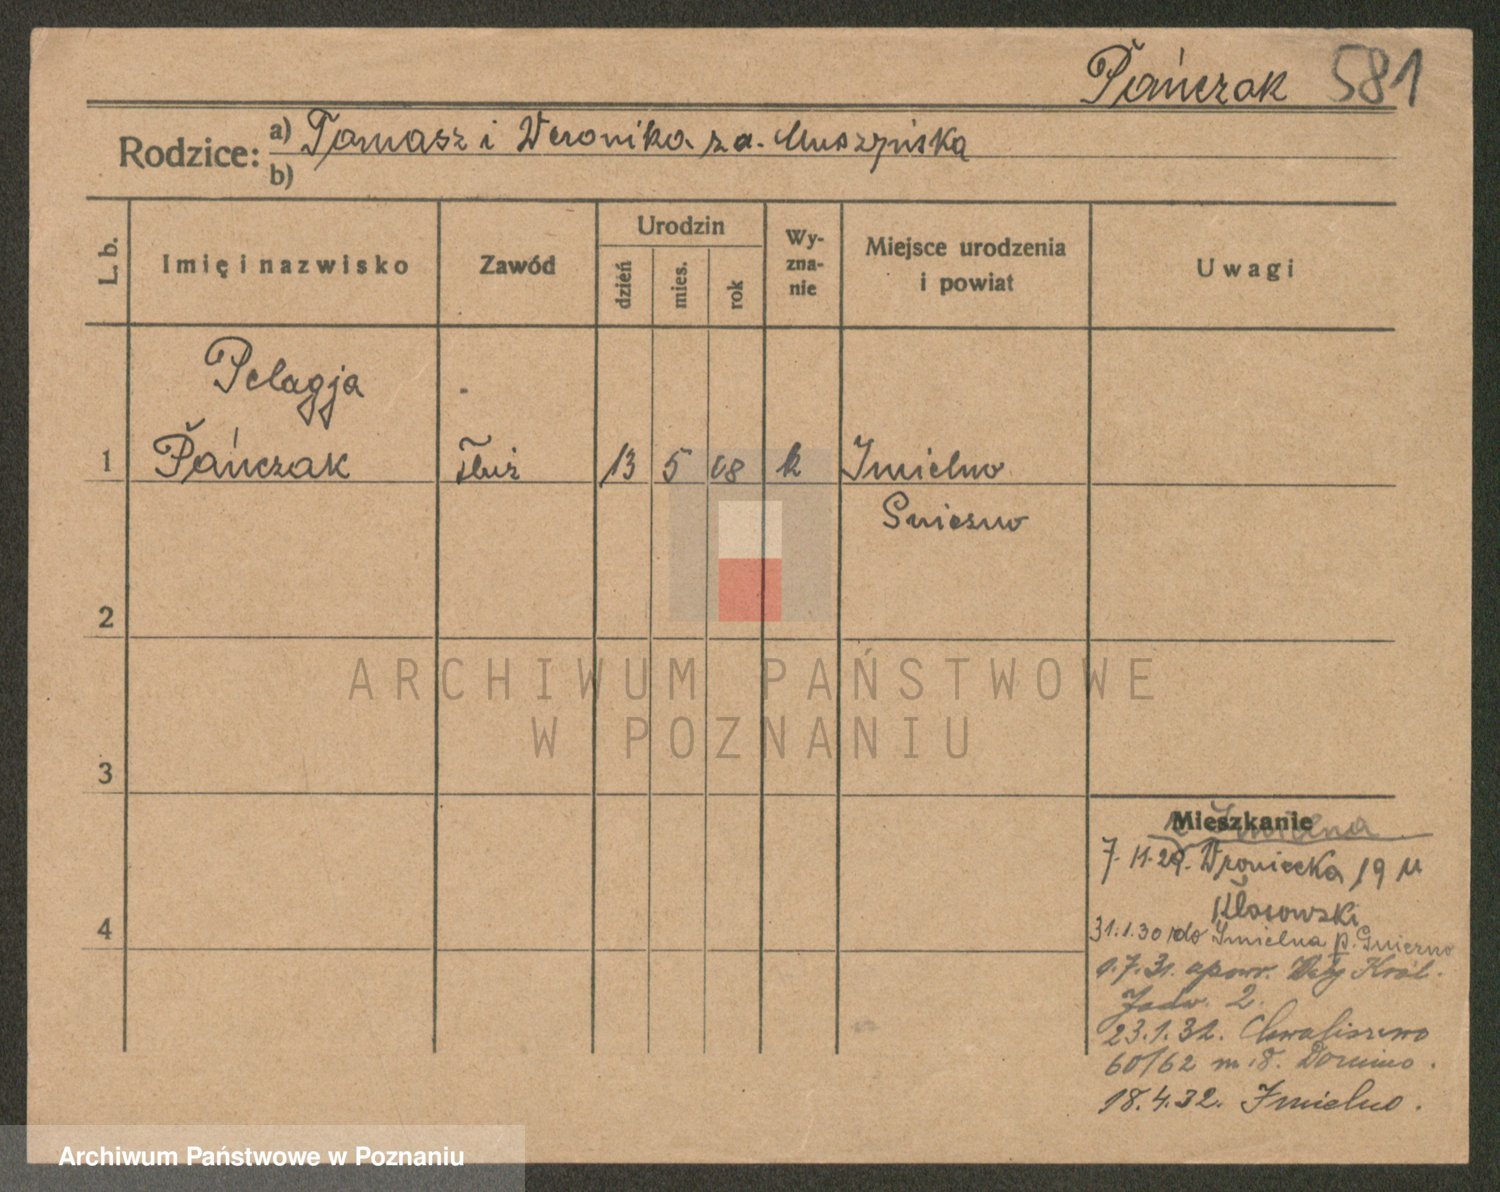 Pańczak 581
Rodzice: a) Tomasz i Weronika z d. Muszyńska
b)
L. b.
Imię i nazwisko
Zawód
Urodzin
dzień
mies.
rok
Wy-
zna-
nie
Miejsce urodzenia
i powiat
Uwagi
Pelagja
1 Pańczak służ 13 5 08 k Imielno
Gniezno
2
3
4
Mieszkanie
z Imielna
7.11.29. Wroniecka 19 u
31.1.30 do Imielna p. Gniezno
1.7.31. Wały Król.
Jadw. 2.
23.1.32. Chwaliszewo
60/62 m 8.
18.4.32. Imielno.
ARCHIWUM PAŃSTWOWE
W POZNANIU
Archiwum Państwowe w Poznaniu